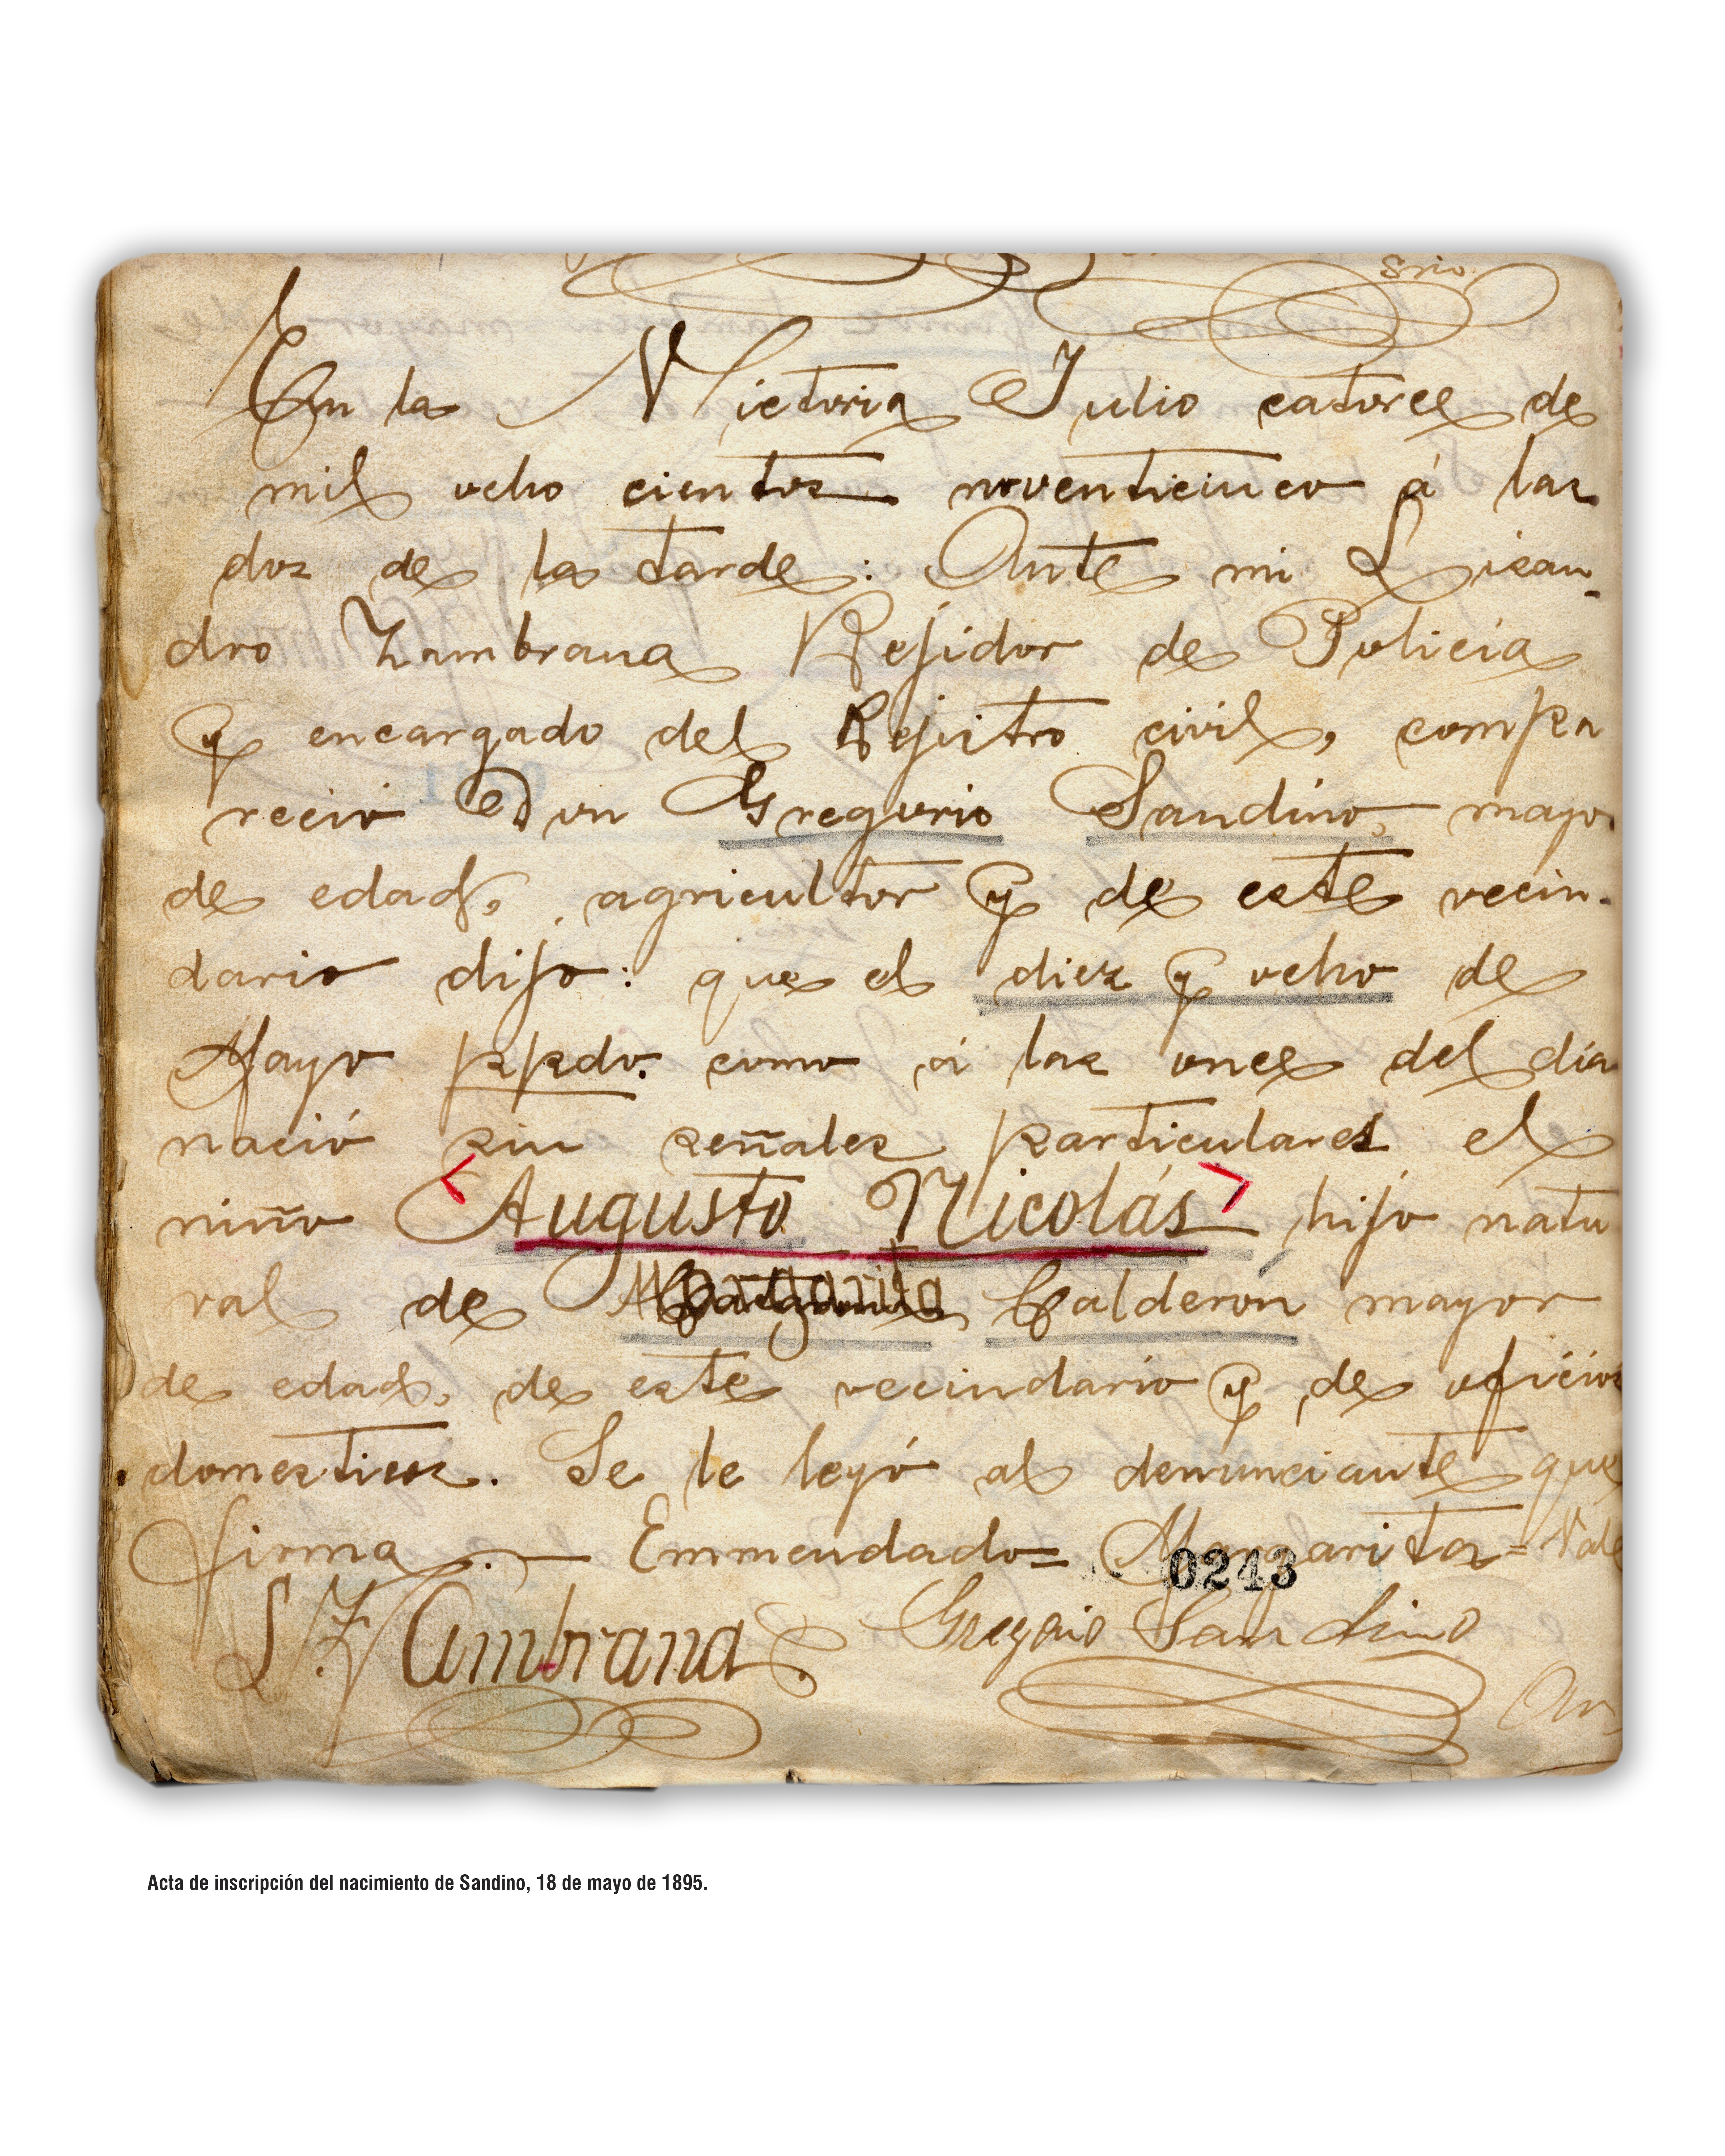 Srio.
En la Victoria Julio catorce de
mil ocho cientos noventicinco á las
dos de la tarde: Ante mi Lisan-
dro Zambrana Rejidor de Policía
y encargado del Rejistro civil, compa
reció Don Gregorio Sandino, mayor
de edad, agricultor y de este vecin-
dario dijo: que el diez y ocho de
Mayo ppdo. como á las once del día
nació sin señales particulares el
niño <Augusto Nicolás> hijo natu
ral de Margarita Calderón mayor
de edad, de este vecindario y de oficios
domesticos. Se le leyó al denunciante que
firma.— Emmendado= Margarita= Vale
0243
L Zambrana Gregorio Sandino
Acta de inscripción del nacimiento de Sandino, 18 de mayo de 1895.